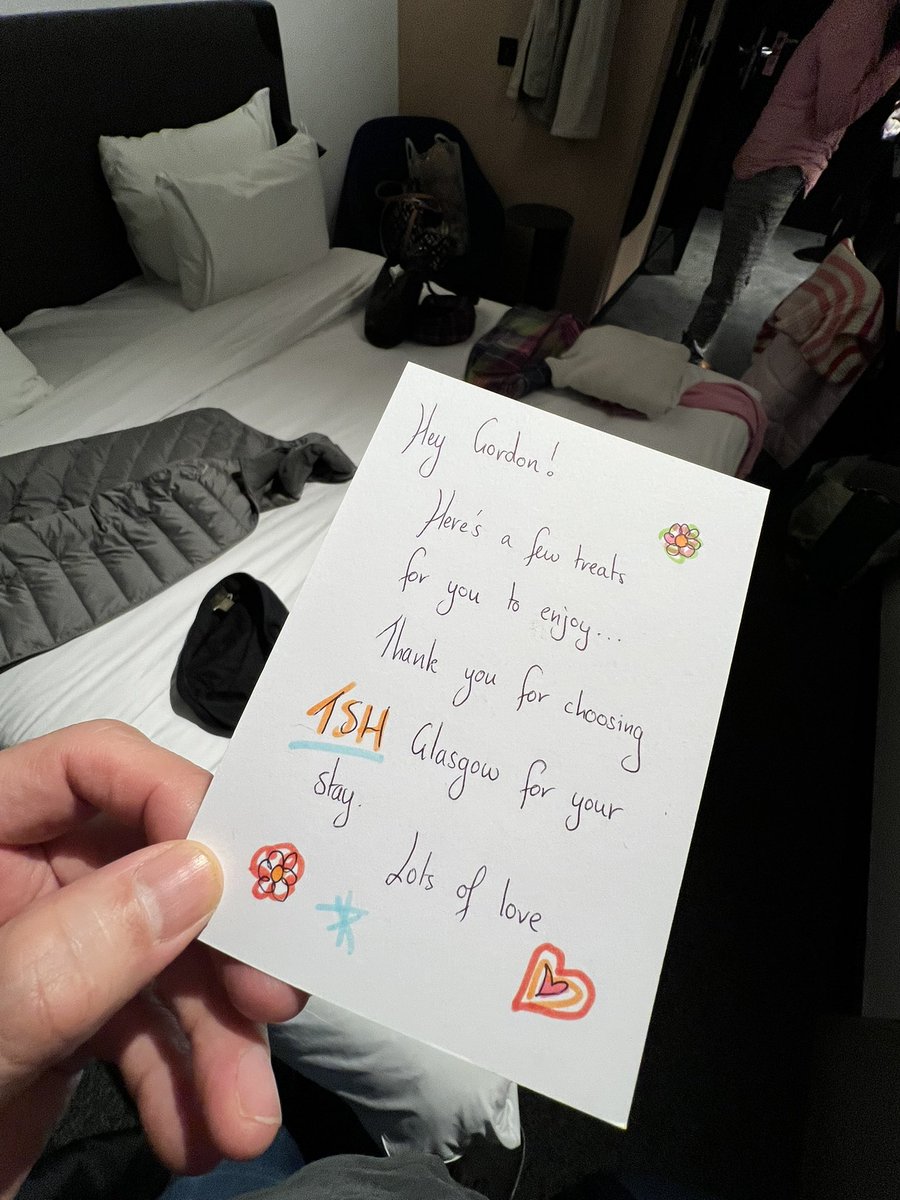 Hey Gordon!
Here's a few treats
for you to enjoy...
Thank you for choosing
TSH Glasgow for your
stay.
Lots of love